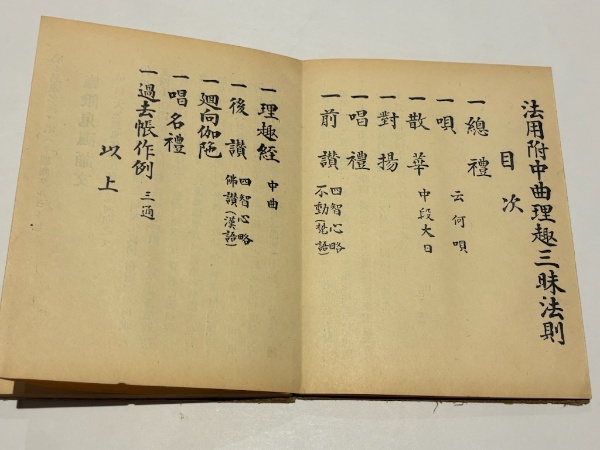 法用附中曲理趣三昧法則
目次
一總禮
一唄 云何唄
一散華 中段大日
一對揚
一唱禮
一前讃 四智心略
不動(梵語)
一理趣経 中曲
一後讃 四智心略
佛讃(漢語)
一廻向伽陀
一唱名禮
一過去帳作例 三通
以上